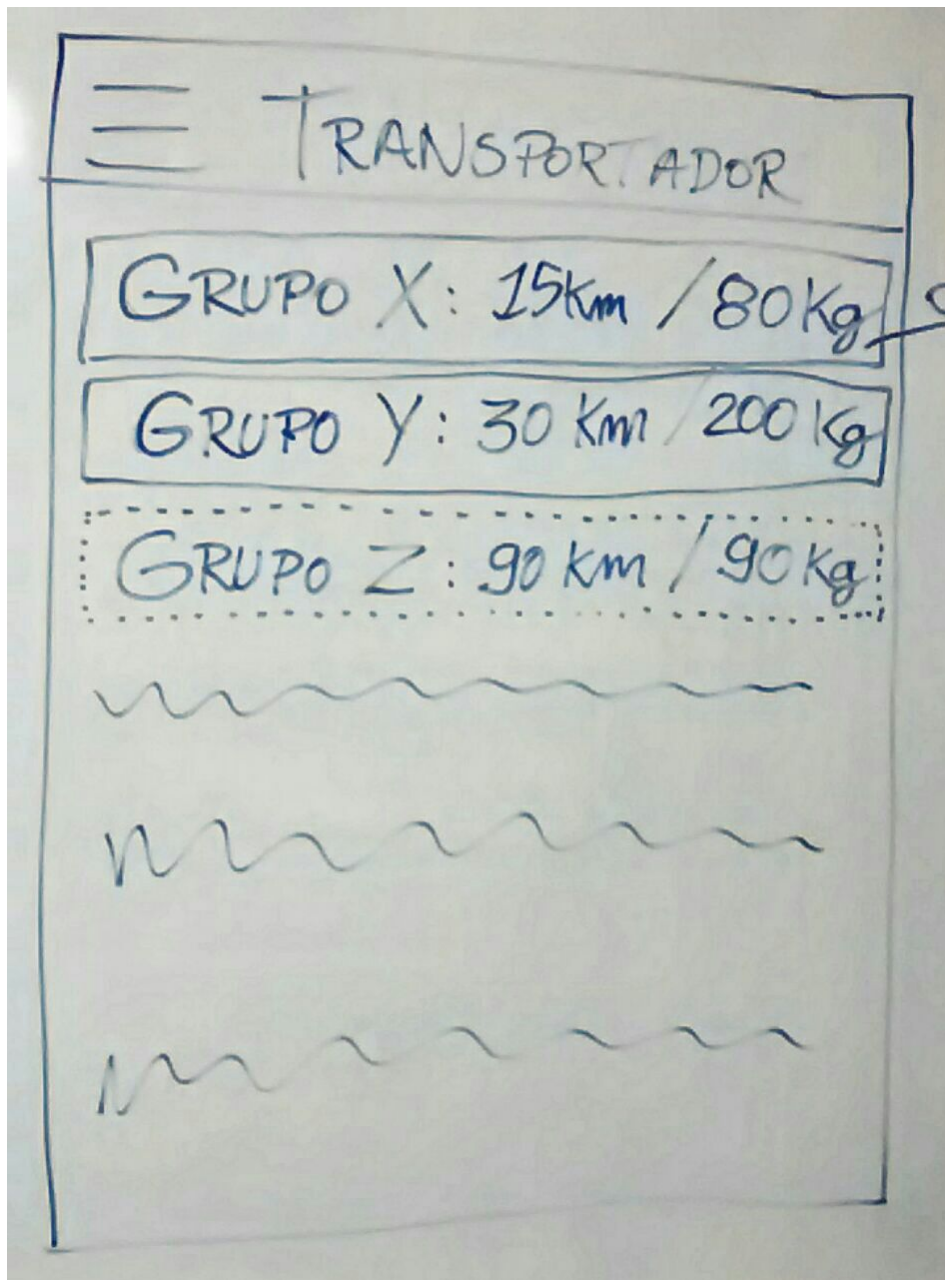 TRANSPORTADOR
GRUPO X: 15km / 80Kg
GRUPO Y: 30 Km / 200 Kg
GRUPO Z: 90 km / 90 Kg